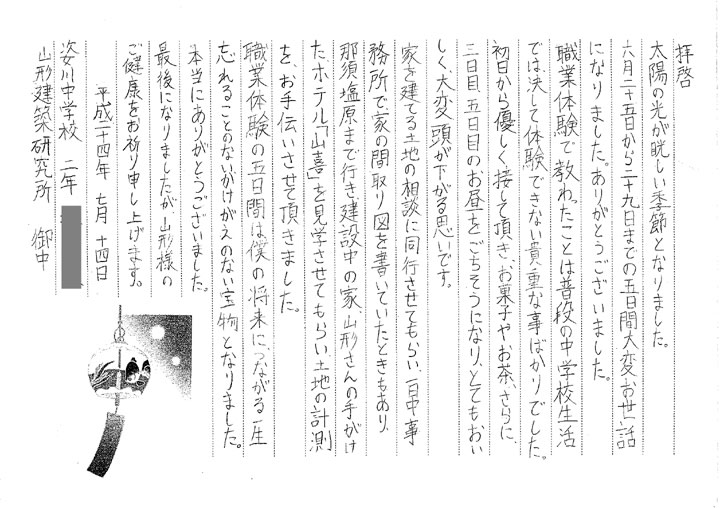 拝啓
太陽の光が眩しい季節となりました。
六月二十五日から二十九日までの五日間大変お世話
になりました。ありがとうございました。
職業体験で教わったことは普段の中学校生活
では決して体験できない貴重な事ばかりでした。
初日から優しく接して頂き、お菓子やお茶、さらに、
三日目、五日目のお昼をごちそうになり、とてもおい
しく、大変頭が下がる思いです。
家を建てる土地の相談に同行させてもらい、一日中事
務所で家の間取り図を書いていたときもあり、
那須塩原まで行き、建設中の家、山形さんの手がけ
た、ホテル「山喜」を見学させてもらい、土地の計測
を、お手伝いさせて頂きました。
職業体験の五日間は、僕の将来に、つながる一生
忘れることのないかけがえのない宝物となりました。
本当にありがとうございました。
最後になりましたが、山形様の
ご健康をお祈り申し上げます。
平成二十四年 七月 十四日
姿川中学校 二年
山形建築研究所 御中